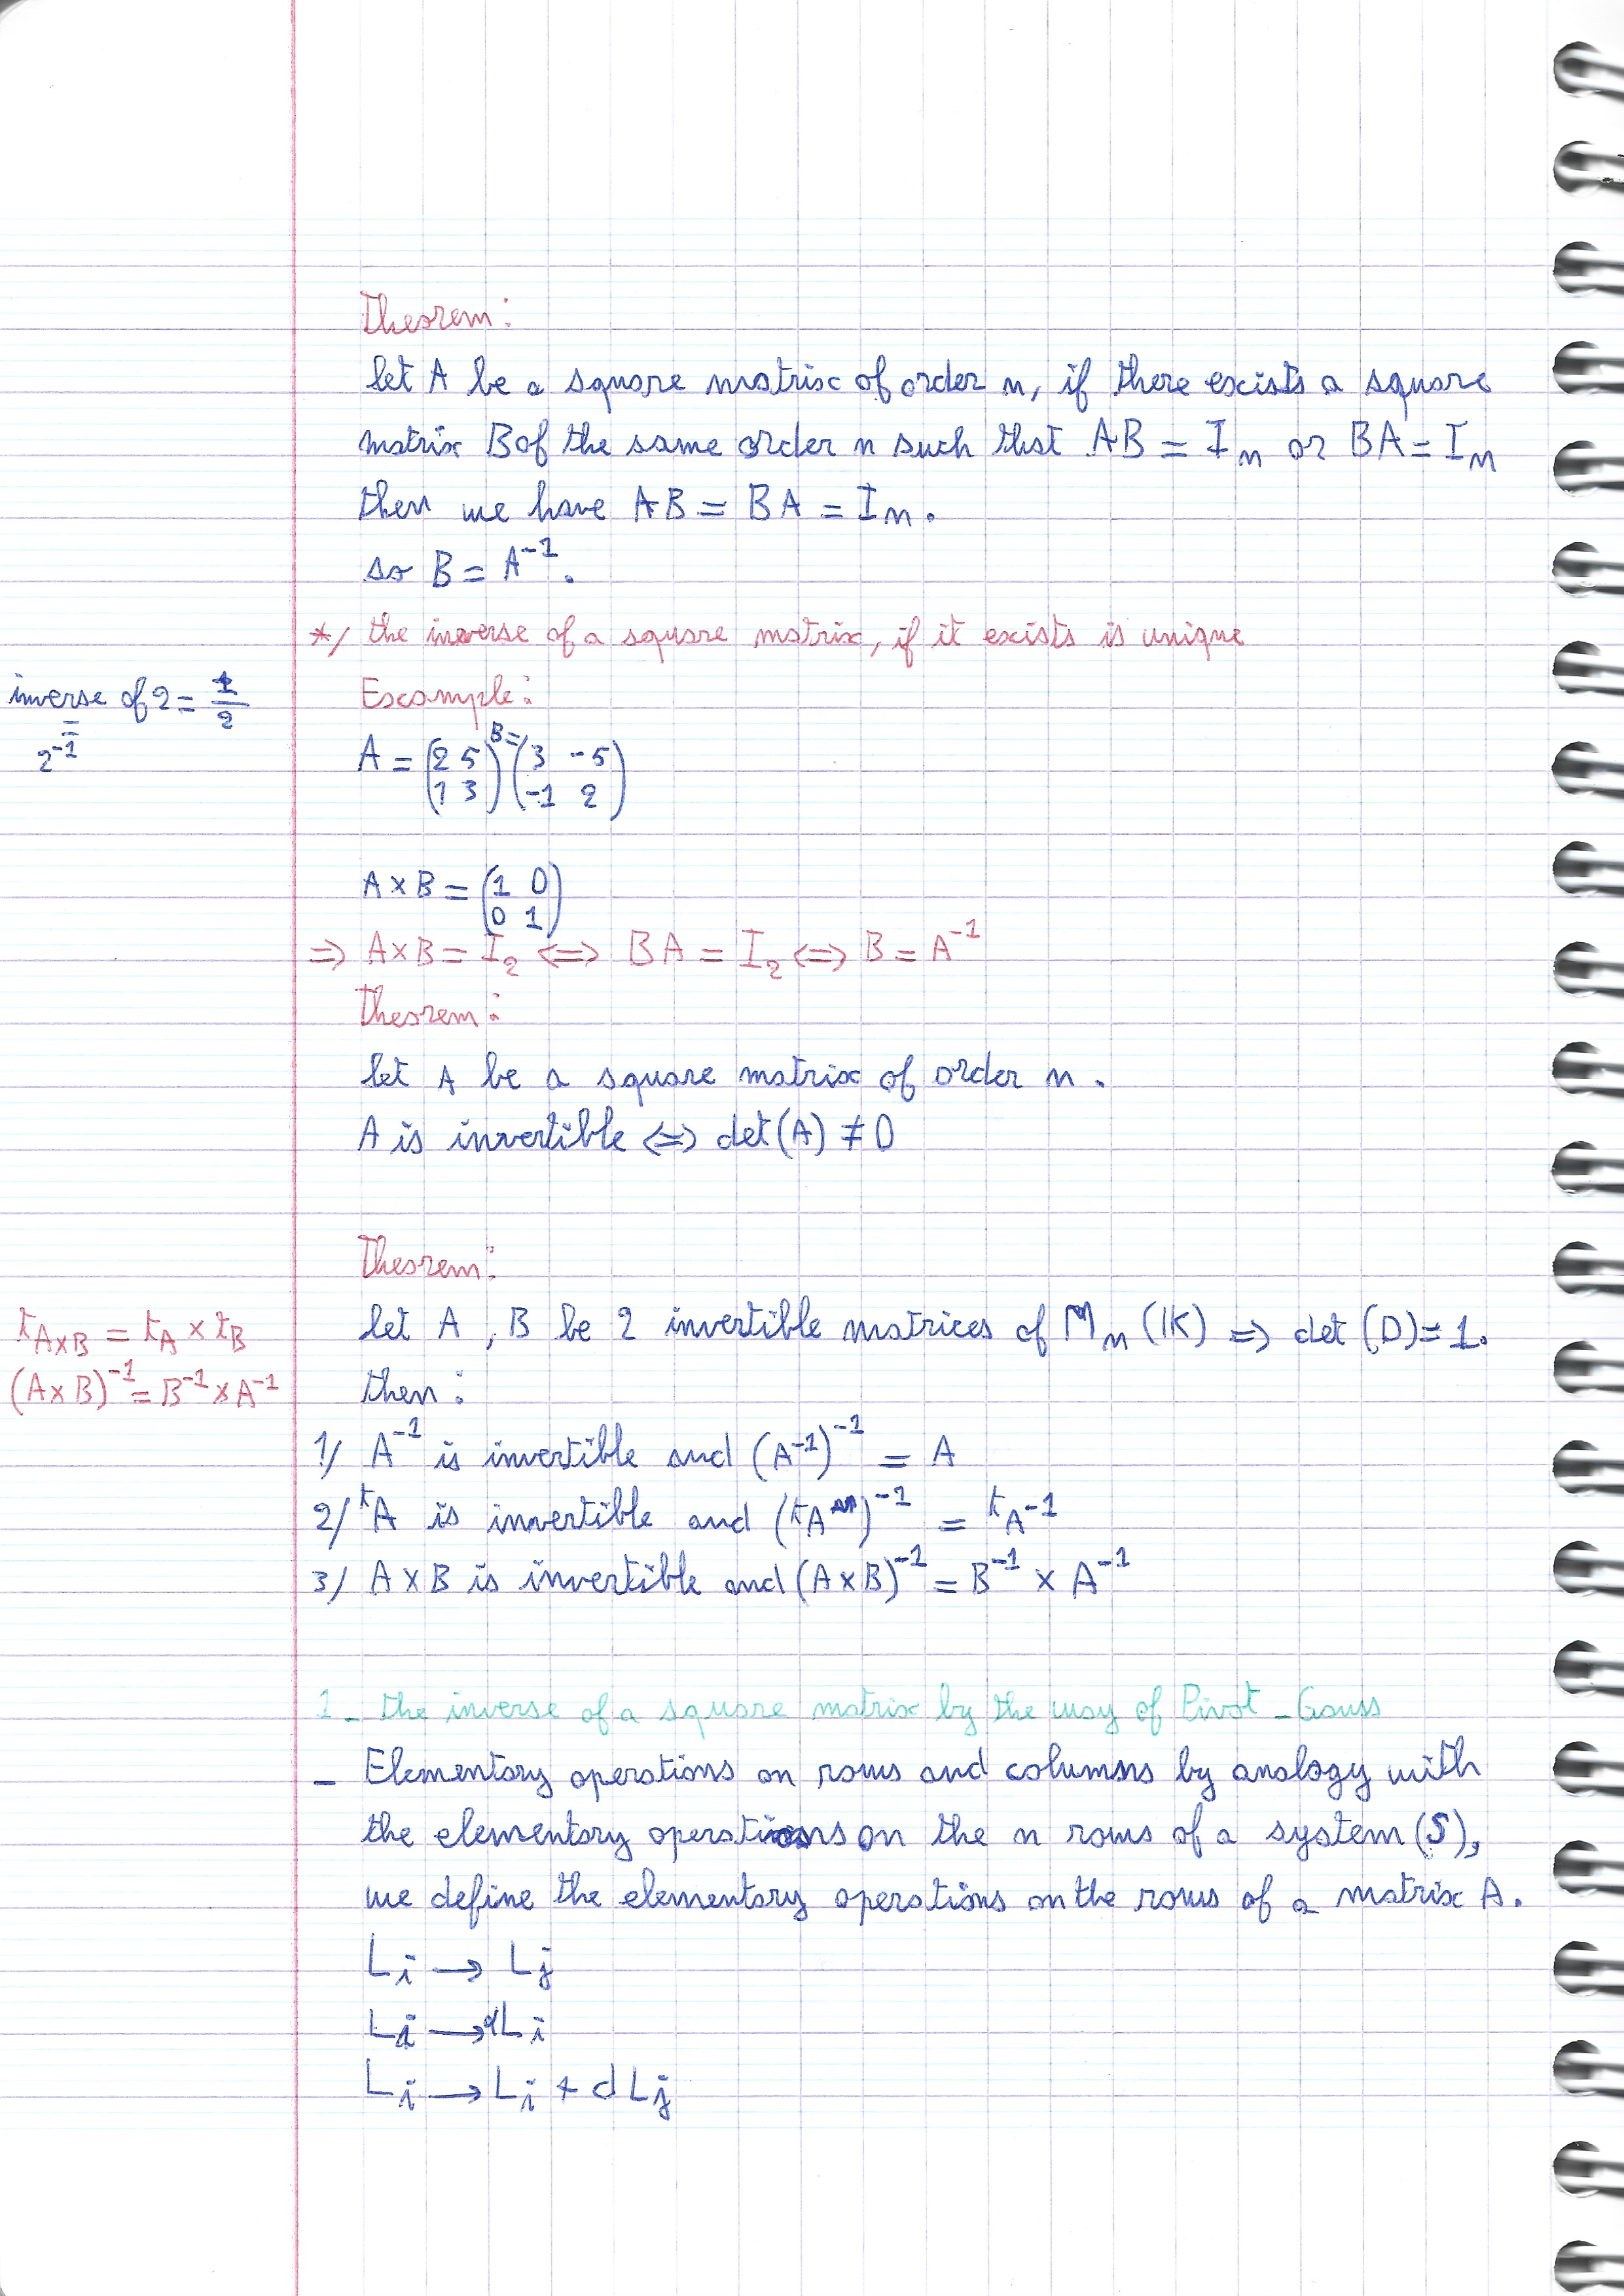 Theorem:
let A be a square matrix of order n, if there exists a square
matrix B of the same order n such that AB = Iₙ or BA = Iₙ
then we have AB = BA = Iₙ.
so B = A⁻¹.
*/ the inverse of a square matrix, if it exists is unique
inverse of 2 = 1/2
=
2⁻¹
Example:
A = (2 5) B= (3 -5)
(1 3) (-1 2)
A × B = (1 0)
(0 1)
⇒ A×B = I₂ ⇔ BA = I₂ ⇔ B = A⁻¹
theorem:
let A be a square matrix of order n.
A is invertible ⇔ det(A) ≠ 0
Theorem:
let A, B be 2 invertible matrices of Mₙ(K) ⇒ det(D) = 1.
ᵗA×B = ᵗA × ᵗB
(A×B)⁻¹ = B⁻¹ × A⁻¹
then:
1/ A⁻¹ is invertible and (A⁻¹)⁻¹ = A
2/ ᵗA is invertible and (ᵗA)⁻¹ = ᵗA⁻¹
3/ A×B is invertible and (A×B)⁻¹ = B⁻¹ × A⁻¹
1- the inverse of a square matrix by the way of Pivot-Gauss
- Elementary operations on rows and columns by analogy with
the elementary operations on the n rows of a system (S),
we define the elementary operations on the rows of a matrix A.
Lᵢ → Lⱼ
Lᵢ → αLᵢ
Lᵢ → Lᵢ + dLⱼ